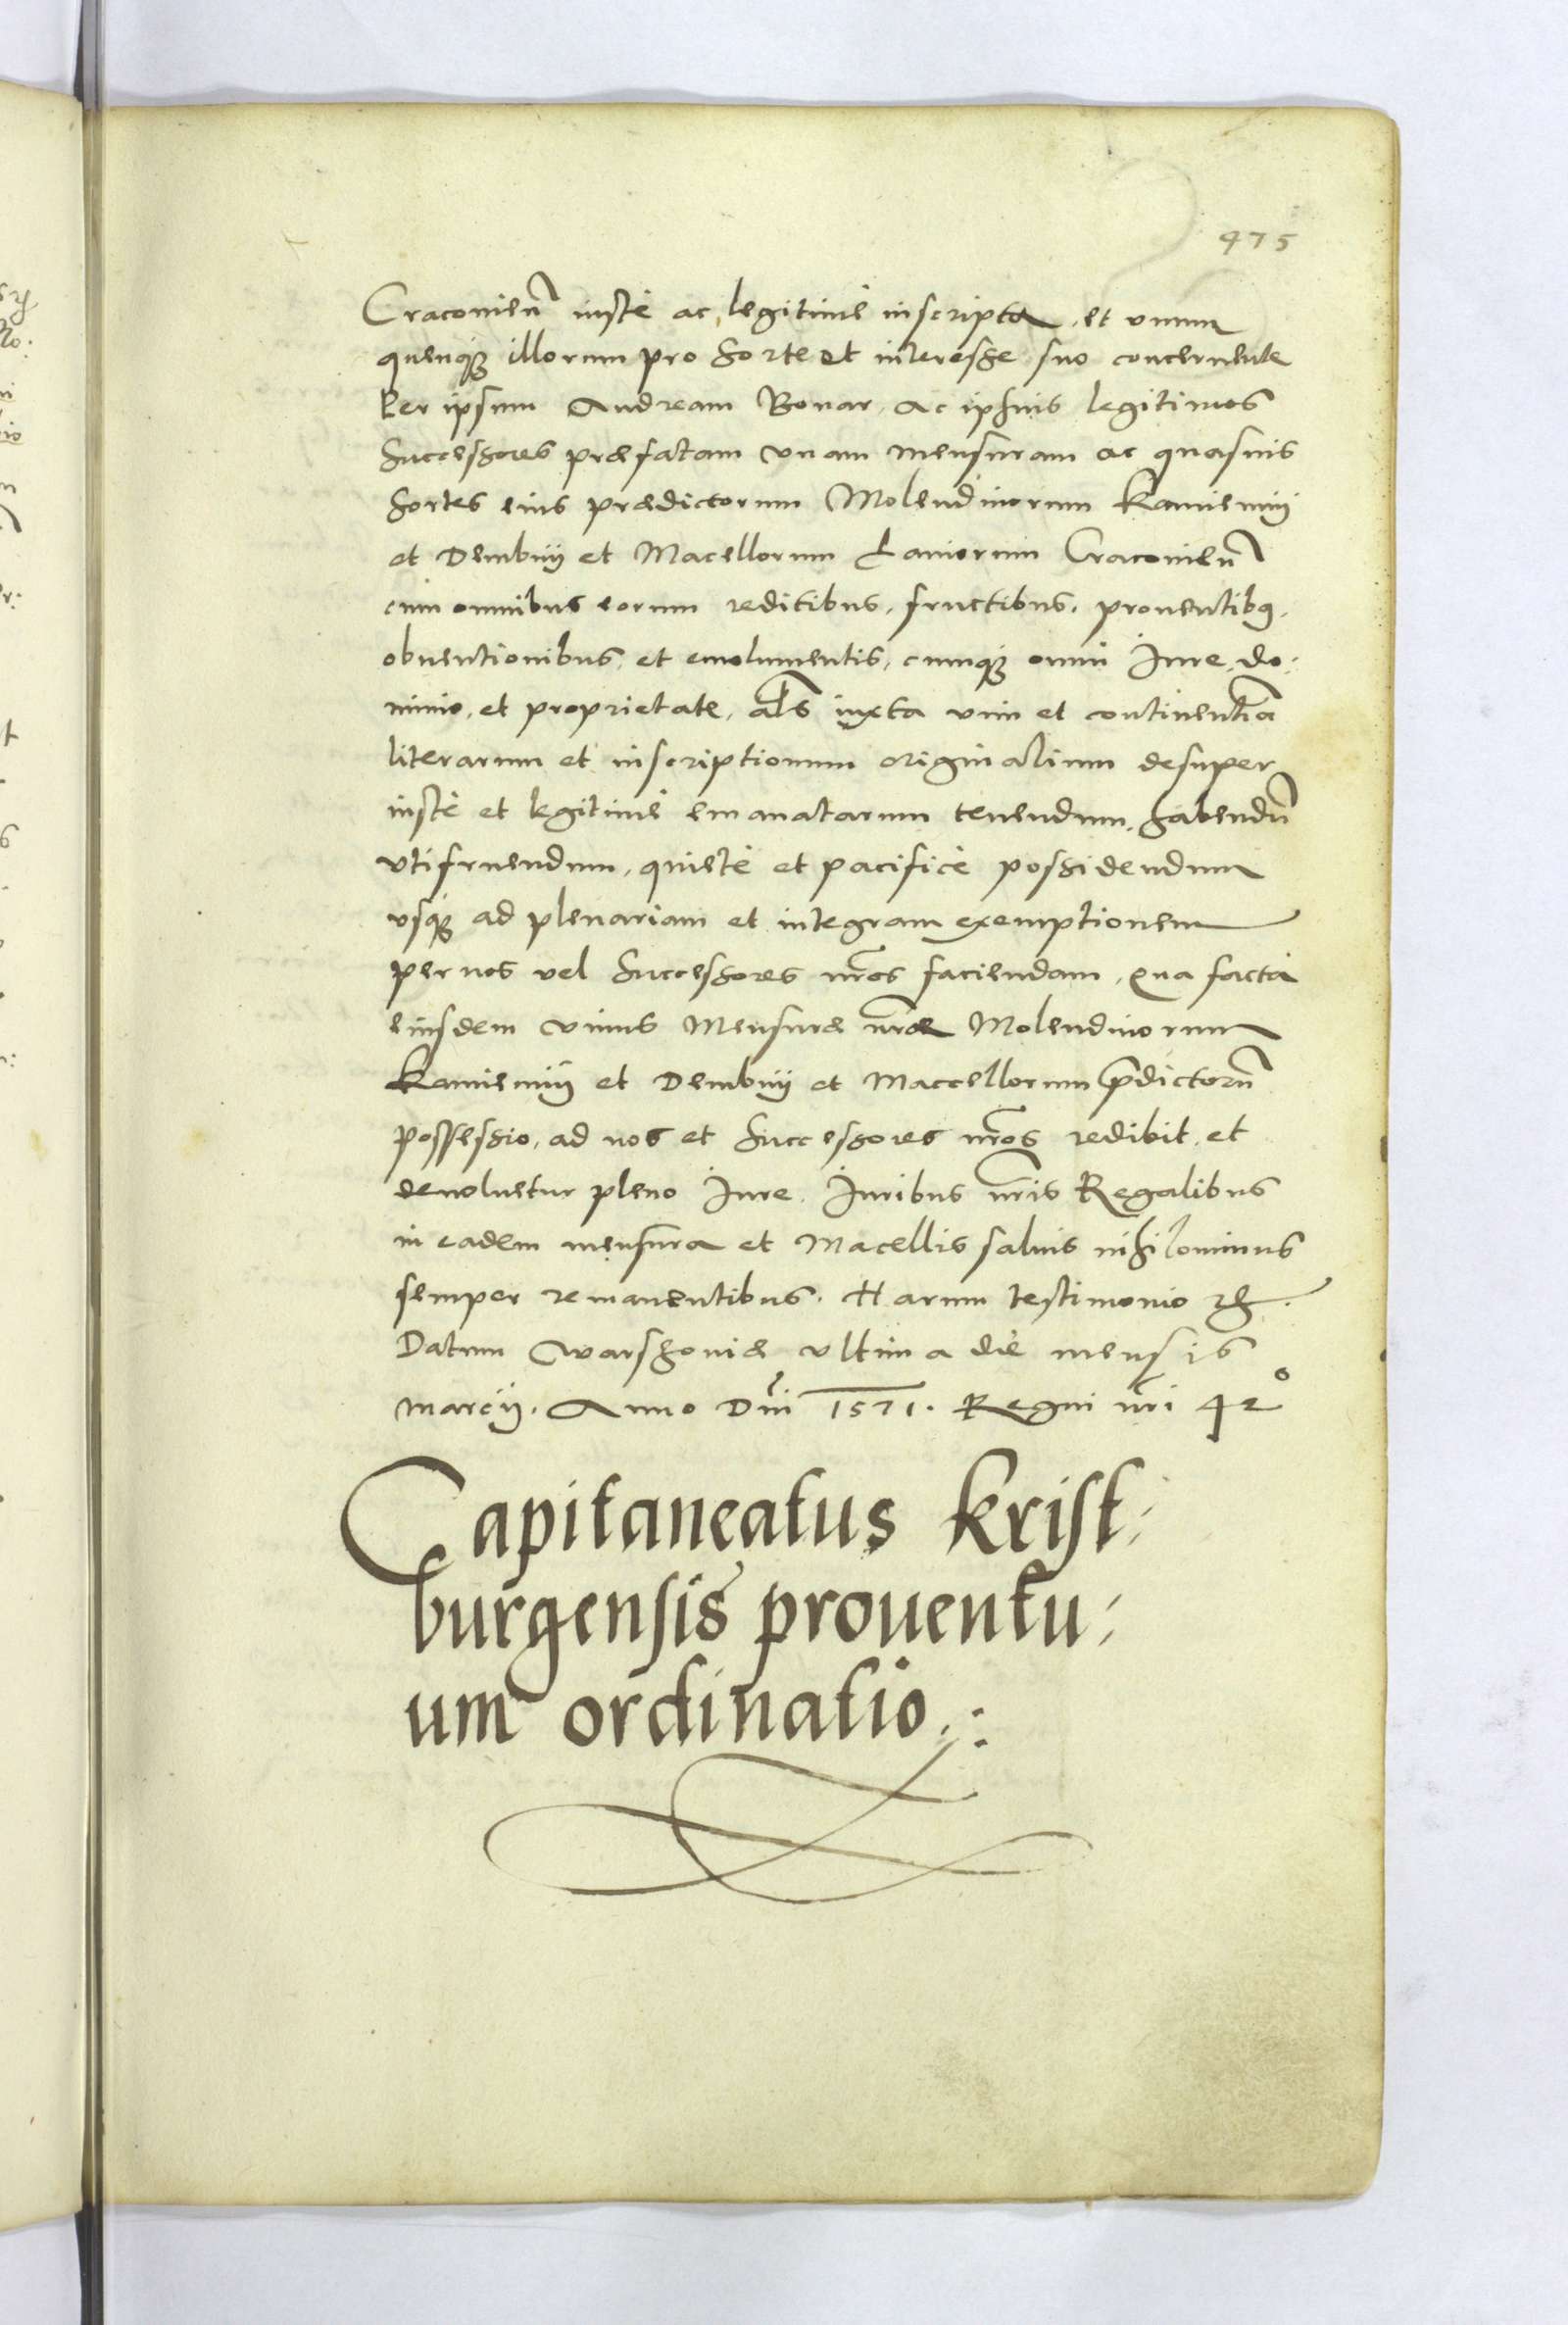 475
Cracouien̄ iustè ac legitimè inscripta, et unum
quenqȝ illorum pro sorte et interesse suo concernente
Per ipsum Andream Bonar, ac ipsius legitimos
Successores præfatam vnam mensuram ac quasuis
sortes eius prædictorum Molendinorum Kamiennij
et Dembnij et Macellorum Laniorum Cracouien̄
cum omnibus eorum reditibus, fructibus, prouentibꝫ,
obuentionibus, et emolumentis, cumqȝ omni Iure, do:
minio, et proprietate, al̄s iuxta vim et continentiā
literarum et inscriptionum originalium desuper
iustè et legitimè emanatarum tenendum, habendū
vtifruendum, quietè et pacificè possidendum
vsqȝ ad plenariam et integram exemptionem
per nos vel Successores nr̄os faciendam, qua facta
eiusdem vnius Mensuræ nr̄æ Molendinorum
Kamiennij et Dembnij et Maccellorum p̄dictorū
possessio, ad nos et Successores nr̄os redibit, et
deuoluetur pleno Iure. Iuribus nr̄is Regalibus
in eadem mensura et Macellis saluis nihilominus
semper remanentibus. Harum testimonio etc.
Datum Warschouiæ vltima die mensis
marcij. Anno Dn̄i 1571. Regni nr̄i 42°
Capitaneatus Krist:
burgensis prouentu:
um ordinatio.: